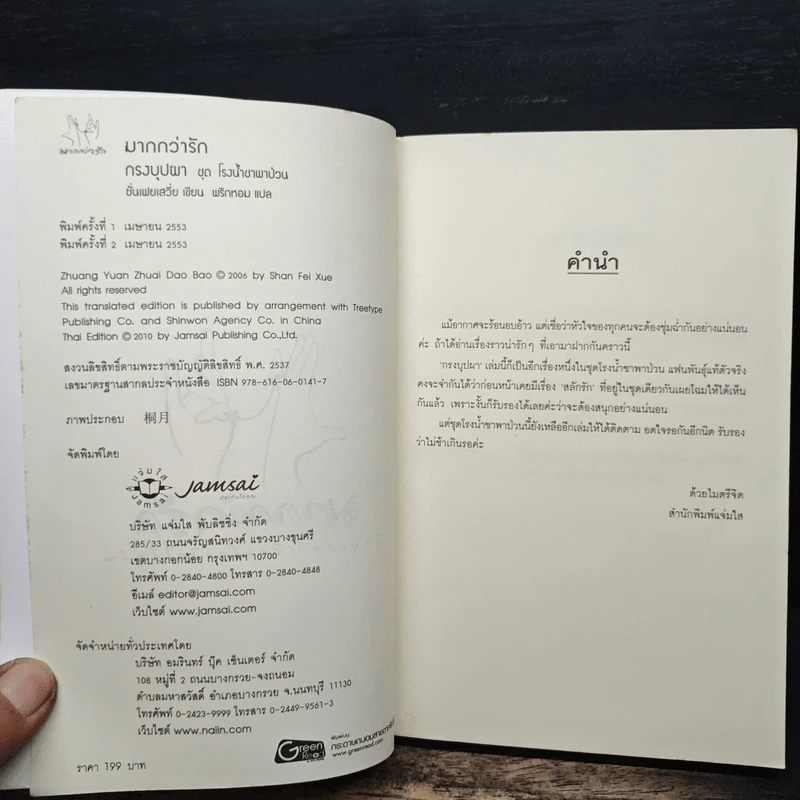 มากกว่ารัก
มากกว่ารัก
กรงบุปผา ชุด โรงน้ำชาพาป่วน
ชั่นเฟยเสวี่ย เขียน พริกหอม แปล
พิมพ์ครั้งที่ 1 เมษายน 2553
พิมพ์ครั้งที่ 2 เมษายน 2553
Zhuang Yuan Zhuai Dao Bao © 2006 by Shan Fei Xue
All rights reserved
This translated edition is published by arrangement with Treetype
Publishing Co. and Shinwon Agency Co. in China
Thai Edition © 2010 by Jamsai Publishing Co.,Ltd.
สงวนลิขสิทธิ์ตามพระราชบัญญัติลิขสิทธิ์ พ.ศ. 2537
เลขมาตรฐานสากลประจำหนังสือ ISBN 978-616-06-0141-7
ภาพประกอบ 桐月
จัดพิมพ์โดย
แจ่มใส
JAMSAI
Jamsai
บริษัท แจ่มใส พับลิชชิ่ง จำกัด
285/33 ถนนจรัญสนิทวงศ์ แขวงบางขุนศรี
เขตบางกอกน้อย กรุงเทพฯ 10700
โทรศัพท์ 0-2840-4800 โทรสาร 0-2840-4848
อีเมล์ editor@jamsai.com
เว็บไซต์ www.jamsai.com
จัดจำหน่ายทั่วประเทศโดย
บริษัท อมรินทร์ บุ๊ค เซ็นเตอร์ จำกัด
108 หมู่ที่ 2 ถนนบางกรวย-จงถนอม
ตำบลมหาสวัสดิ์ อำเภอบางกรวย จ.นนทบุรี 11130
โทรศัพท์ 0-2423-9999 โทรสาร 0-2449-9561-3
เว็บไซต์ www.naiin.com
Green Read
พิมพ์บน
กระดาษถนอมสายตา
www.greenread.com
ราคา 199 บาท
คำนำ
แม้อากาศจะร้อนอบอ้าว แต่เชื่อว่าหัวใจของทุกคนจะต้องชุ่มฉ่ำกันอย่างแน่นอน
ค่ะ ถ้าได้อ่านเรื่องราวน่ารักๆ ที่เอามาฝากกันคราวนี้
'กรงบุปผา' เล่มนี้ก็เป็นอีกเรื่องหนึ่งในชุดโรงน้ำชาพาป่วน แฟนพันธุ์แท้ตัวจริง
คงจะจำกันได้ว่าก่อนหน้าเคยมีเรื่อง 'สลักรัก' ที่อยู่ในชุดเดียวกันเผยโฉมให้ได้เห็น
กันแล้ว เพราะงั้นก็รับรองได้เลยค่ะว่าจะต้องสนุกอย่างแน่นอน
แต่ชุดโรงน้ำชาพาป่วนนี้ยังเหลืออีกเล่มให้ได้ติดตาม อดใจรอกันอีกนิด รับรอง
ว่าไม่ช้าเกินรอค่ะ
ด้วยไมตรีจิต
สำนักพิมพ์แจ่มใส